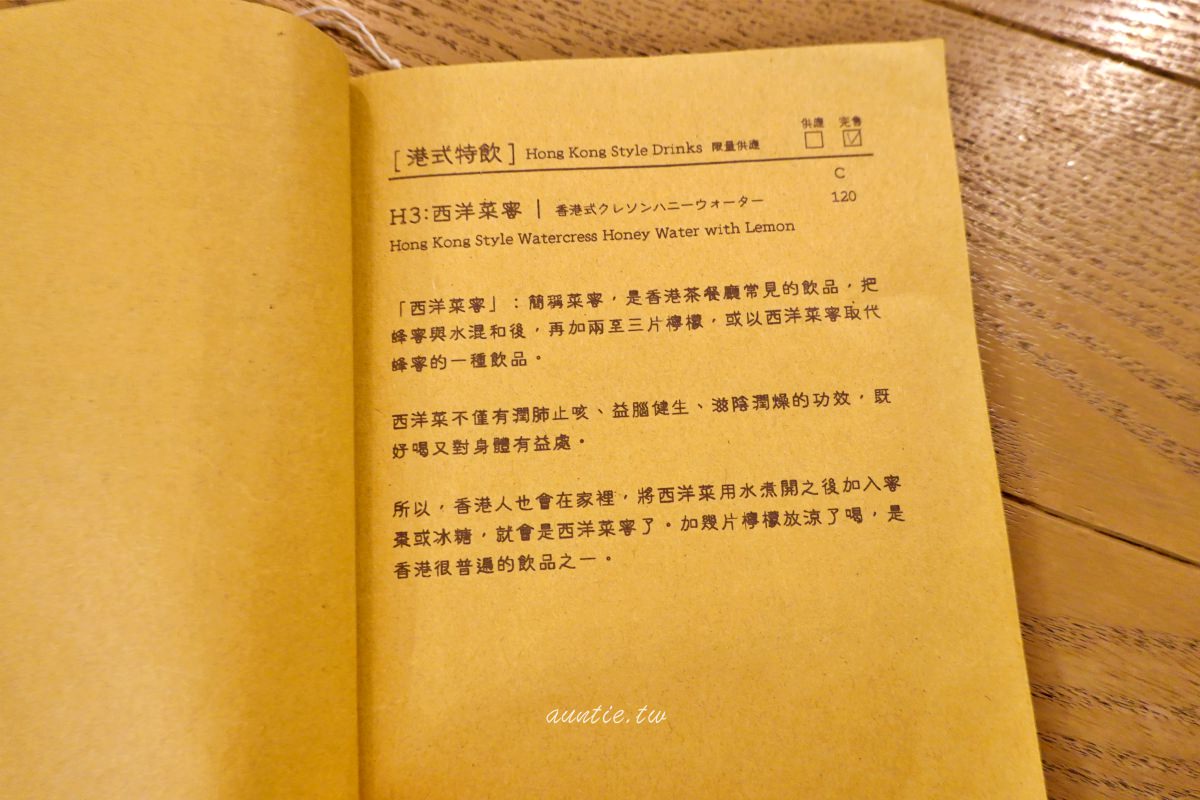 供應 完售
[港式特飲] Hong Kong Style Drinks 限量供應 □ ☑
C
H3:西洋菜蜜 | 香港式クレソンハニーウォーター 120
Hong Kong Style Watercress Honey Water with Lemon
「西洋菜蜜」:簡稱菜蜜,是香港茶餐廳常見的飲品,把
蜂蜜與水混和後,再加兩至三片檸檬,或以西洋菜蜜取代
蜂蜜的一種飲品。
西洋菜不僅有潤肺止咳、益腦健生、滋陰潤燥的功效,既
好喝又對身體有益處。
所以,香港人也會在家裡,將西洋菜用水煮開之後加入蜜
棗或冰糖,就會是西洋菜蜜了。加幾片檸檬放涼了喝,是
香港很普遍的飲品之一。
auntie.tw